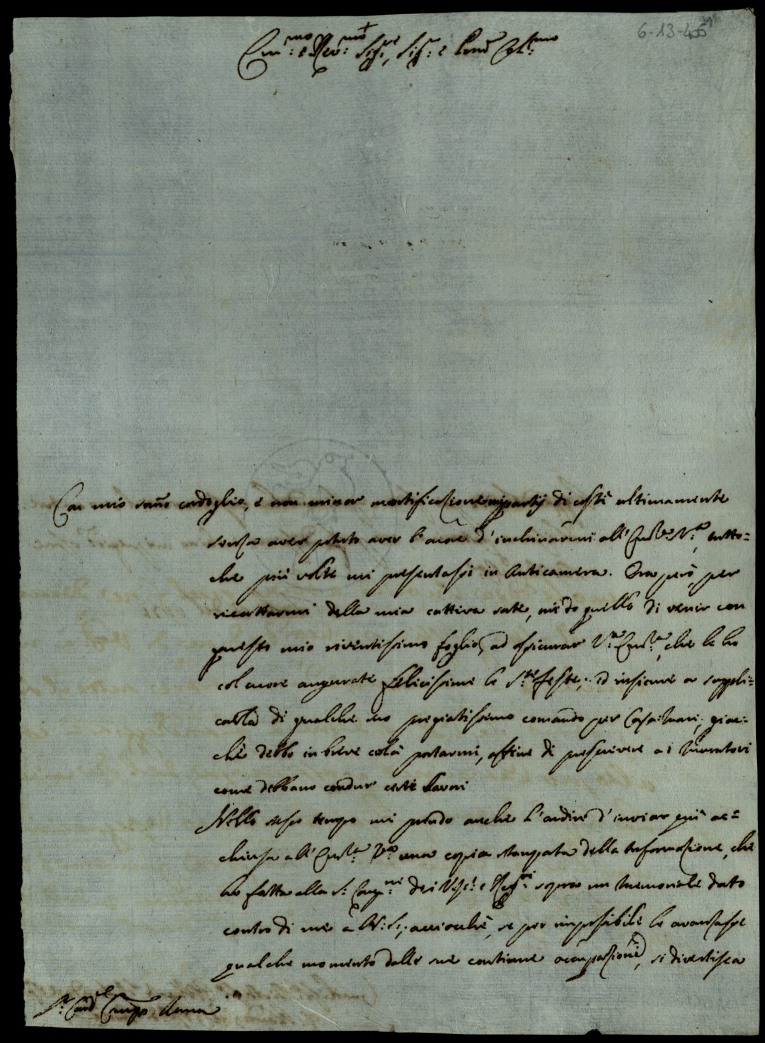 6-13-45
Em:mo e Rev:mo Sig:re, Sig:r e Pron Col:mo
Con mio sommo cordoglio, e non minor mortificazione mi partij di costì ultimamente
senza aver potuto aver l'onore d'inchinarmi all'Em:za V:ra, tutto=
che più volte mi presentassi in Anticamera. Ora però, per
ricattarmi della mia cattiva sorte, mi do quello di venir con
questo mio riverentissimo foglio, ad assicurar V:ra Em:za, che le ho
col cuore augurate felicissime le S:te Feste; ed insieme a suppli=
carla di qualche suo pregiatissimo comando per Casamari, giac=
chè debbo in breve colà portarmi, affine di prescrivere a i Muratori
come debbano condur certi lavori
Nello stesso tempo mi prendo anche l'ardire d'inviar quì ac=
chiusa all'Em:za V:ra una copia stampata della Informazione, che
ho fatta alla S: Cong:ne dei Vesc:i e Reg:ri sopra un Memoriale dato
contro di me a N: S:, acciocchè, se per impossibile le avanzasse
qualche momento dalle sue continue occupazioni, si divertisca
S:r Card:le Roma